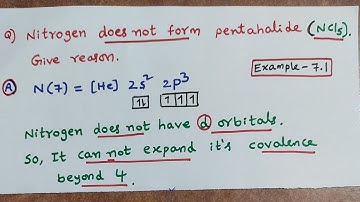 Q) Nitrogen does not form pentahalide (NCl5).
Give reason.
Example - 7.1
A N(7) = [He] 2s² 2p³
↑↓ 1 1 1
Nitrogen does not have d orbitals.
So, It can not expand it's covalence
beyond 4.